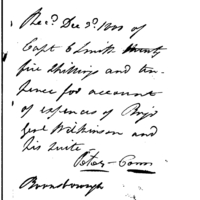 Rec.d Dec 3.d 1800 of
Capt E Smith
five Shillings and ten
pence for account
of expences of Brig.r
Genl Wilkinson and
his suite
Peter